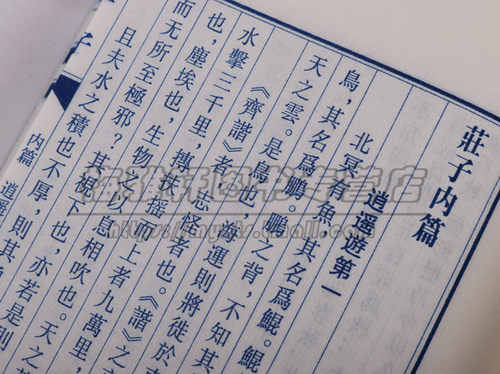 莊子內篇
逍遙遊第一
北冥有魚,其名爲鯤。鯤
鳥,其名爲鵬。鵬之背,不知其
天之雲。是鳥也,海運則將徙於
《齊諧》者,志怪者也。《諧》之
水擊三千里,摶扶搖而上者九萬里,
也,塵埃也,生物之以息相吹也。天之
而无所至極邪?其視下也,亦若是則
且夫水之積也不厚,則其
子
內篇 逍遙遊
图书专营店